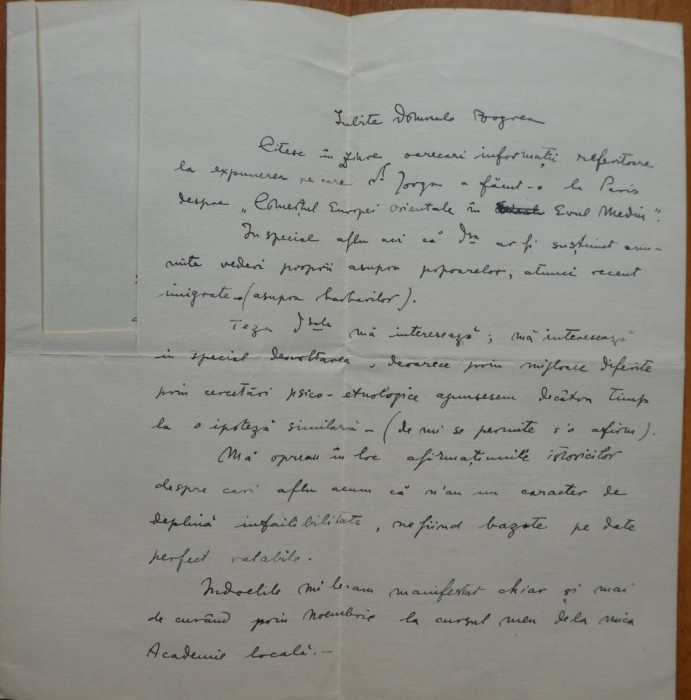 Iubite Domnule Bogrea
Citesc în ziare, oarecari informații referitoare
la expunerea pe care Dl Iorga a făcut-o la Paris
despre „Comerțul Europei orientale în Evul Mediu".
In special aflu aci că Dsa ar fi susținut anu-
mite vederi proprii asupra popoarelor, atunci recent
imigrate – (asupra barbarilor).
Teza Dsale mă interesează; mă interesează
in special dezvoltarea, deoarece prin mijloace diferite
prin cercetări psico-etnologice ajunsesem de câtva timp
la o ipoteză similară – (de mi se permite s'o afirm).
Mă opreau în loc afirmațiunile istoricilor
despre cari aflu acum că n'au un caracter de
deplină infailibilitate, nefiind bazate pe date
perfect valabile.
Indoelile mi le-am manifestat chiar și mai
de curând prin Noembrie la cursul meu dela mica
Academie locală. –